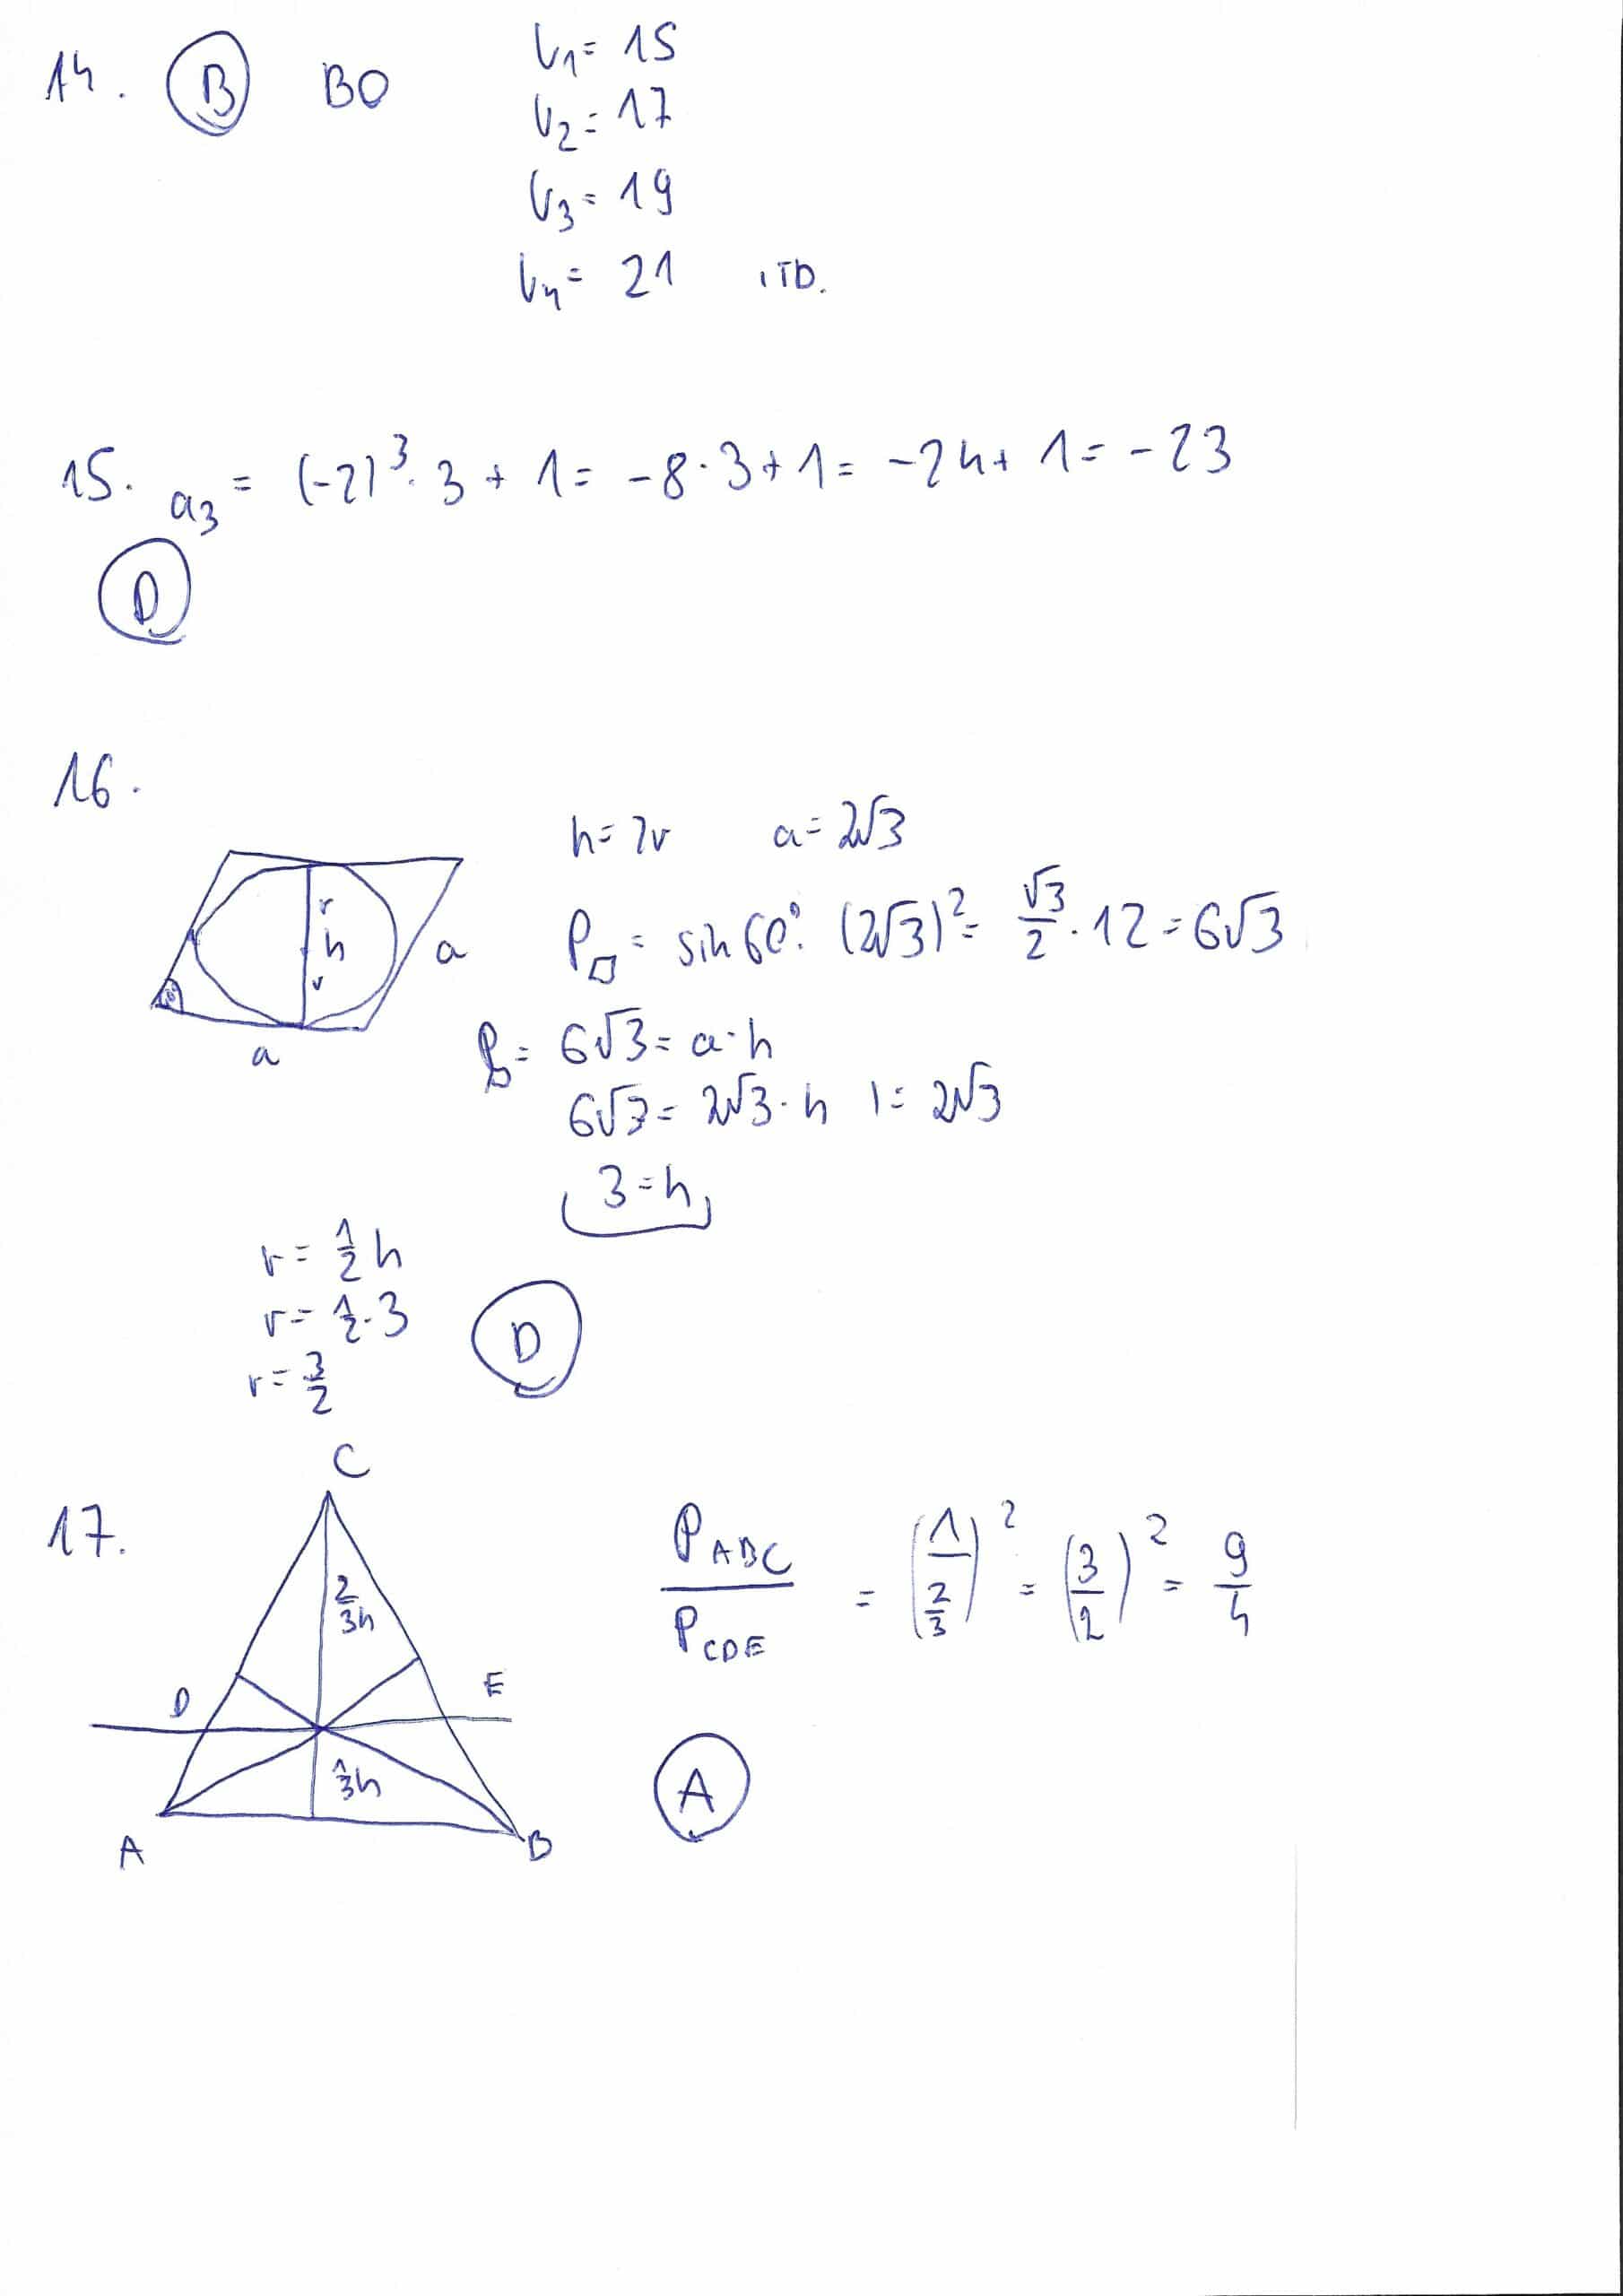 14. B BO b₁ = 15
b₂ = 17
b₃ = 19
b₄ = 21 ITD.
15. a₃ = (-2)³ · 3 + 1 = -8 · 3 + 1 = -24 + 1 = -23
D
16.
h = 2r a = 2√3
r
h
r
60°
a
a
P▱ = sin 60° · (2√3)² = √3/2 · 12 = 6√3
P▱ = 6√3 = a · h
6√3 = 2√3 · h | : 2√3
3 = h
r = 1/2 h
r = 1/2 · 3
r = 3/2
D
17.
C
2/3 h
D E
1/3 h
A B
P_ABC / P_CDE = (1 / (2/3))² = (3/2)² = 9/4
A